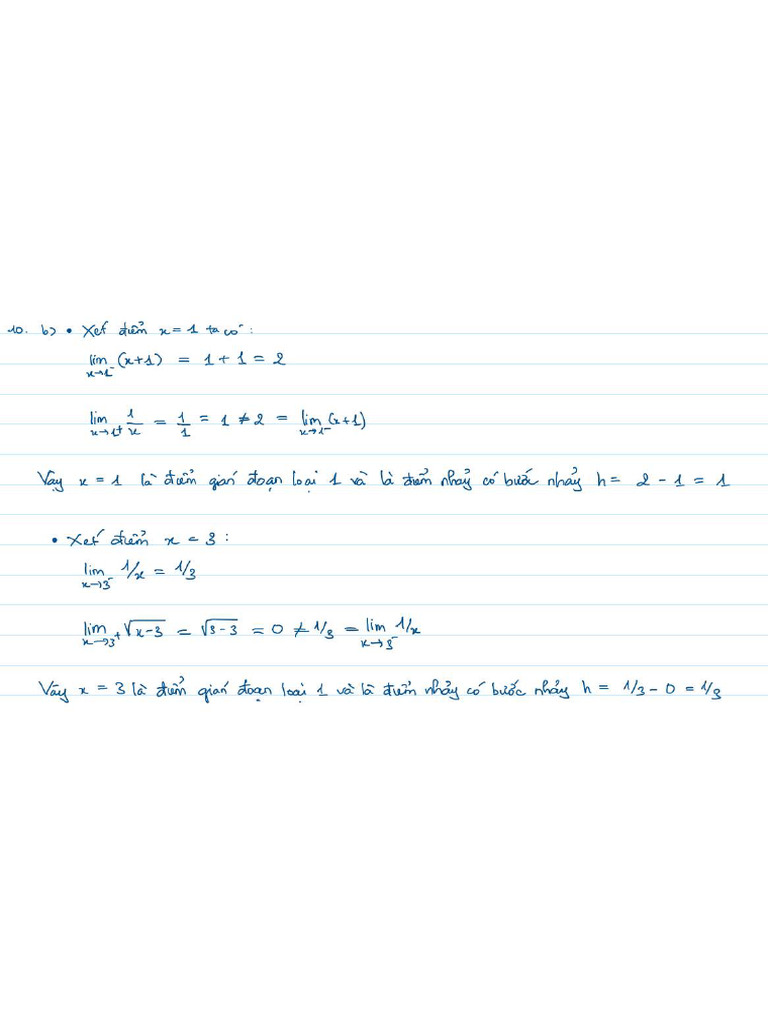 10. b) • Xét điểm x = 1 ta có :
lim x→1⁻ (x+1) = 1 + 1 = 2
lim x→1⁺ 1/x = 1/1 = 1 ≠ 2 = lim x→1⁻ (x+1)
Vậy x = 1 là điểm gián đoạn loại 1 và là điểm nhảy có bước nhảy h = 2 - 1 = 1
• Xét điểm x = 3 :
lim x→3⁻ 1/x = 1/3
lim x→3⁺ √(x-3) = √(3-3) = 0 ≠ 1/3 = lim x→3⁻ 1/x
Vậy x = 3 là điểm gián đoạn loại 1 và là điểm nhảy có bước nhảy h = 1/3 - 0 = 1/3